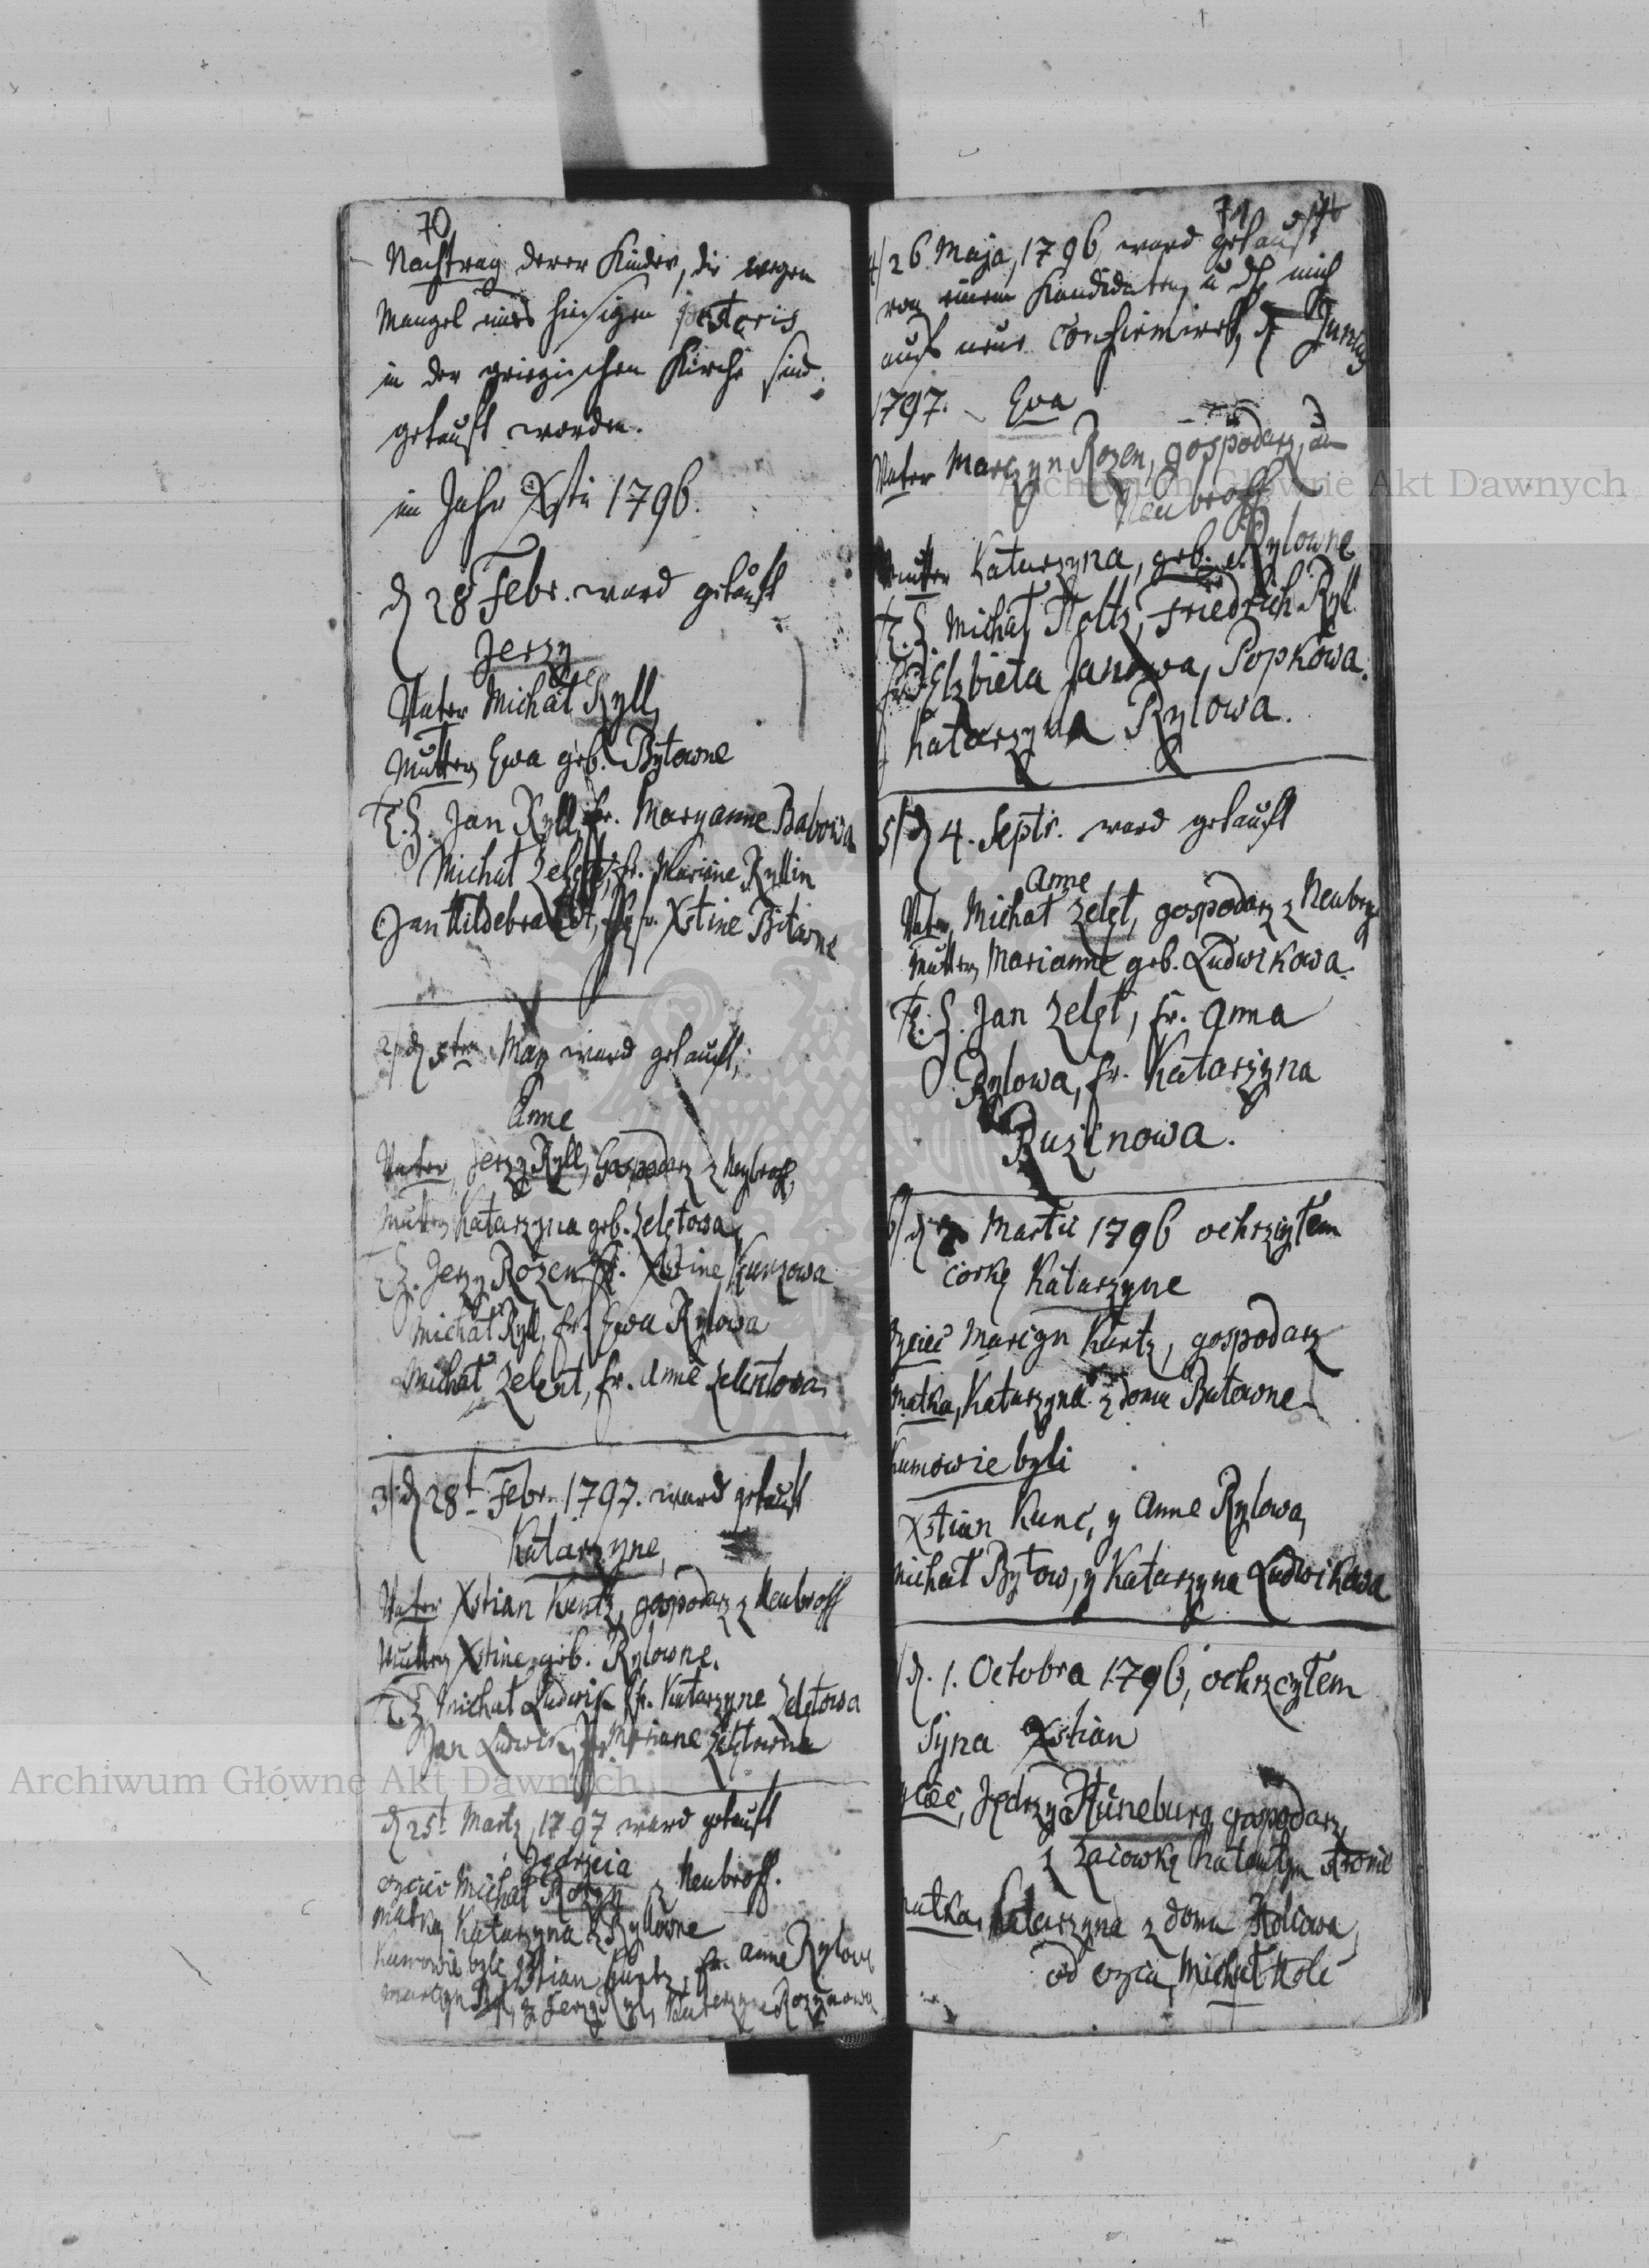 70
Nachtrag derer Kinder, die wegen
Mangel eines hiesigen pastoris
in der griegischen Kirche sind
getauft worden.
im Jahr Xsti 1796.
d 28 Febr. ward getauft
Jerzy
Vater Michał Ryll,
Mutter, Ewa geb. Bytowne
T.Z. Jan Ryll, fr. Maryanne Babowa
Michał Zelent, fr. Marianne Ryllin
Jan Hildebrandt, Jgfr. Xstine Bitowne
2/ d 5ten May ward getauft,
Anne
Vater, Jerzy Ryll, Gospodarz z Neybroff,
Mutter Katarzyna geb. Zelętowa,
T.Z. Jerzy Rozen fr. Xstine Kunzowa
Michał Ryll, fr. Ewa Rylowa
Michał Zelent, fr. Anne Zelentowa,
3/ d 28t Febr. 1797. ward getauft
Katarzyne,
Vater Xstian Kuntz, gospodarz z Neubroff
Mutter Xstine, geb. Rylowne.
T.Z. Michał Ludwik fr. Katarzyne Zelętowa
Jan Ludwik, Mariane Zelętowna
d 25t Martz, 1797 ward getauft
Jędrzeia
oyciec Michał Rozyn z Neubroff.
matka Katarzyna z Ryllowne
Kumowie byli Xstian Kuntz, fr. Anne Rylowa
Marcyn Ryl, z Jerzy Ryl, Katarzyne Rozynowa
71
4/ 26 Maja, 1796, ward getauft
von einem Kandidaten, u. d mich
aufs neue confirmirt, d Juny
1797. Eva
Vater Marcyn Rozen, gospodarz, in
Neubroff
Mutter Katarzyna, geb. Rylowne
T.Z. Michał Holtz, Friedrich Ryl
fr. Elzbieta Janowa, Popkowa.
Katarzyna Rylowa.
5/ d 4. Septr. ward getauft
Anne
Vater, Michał Zelęt, gospodarz z Neubroff
Mutter, Marianne geb. Ludwikowa.
T.Z. Jan Zelęt, fr. Anna
Rylowa, fr. Katarzyna
Ruzinowa.
6/ d Martii 1796 ochrzciłem
corkę Katarzyne
Oyciec Marcyn Kuntz, gospodarz
Matka, Katarzyna z domu Butowne
Kumowie byli
Xstian Kunc, y Anne Rylowa,
Michał Bytow, y Katarzyna Ludwikowa
d. 1. Octobra 1796, ochrzcyłem
Syna Xstian
oyciec, Jędrzy Hüneburg gospodarz,
z
matka, Katarzyna z domu Holcowa,
od oyca, Michał Holc
Archiwum Główne Akt Dawnych
Archiwum Główne Akt Dawnych